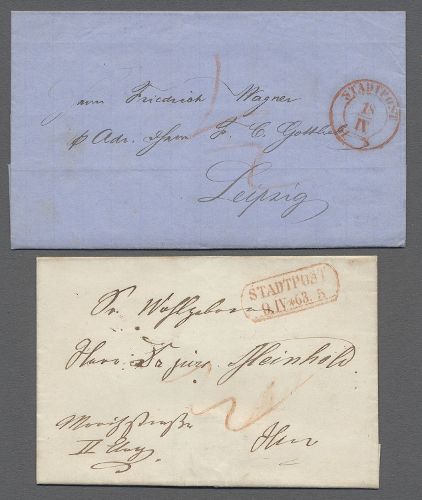 Friedrich Wagner
STADTPOST
18
IV
p Adr. Herrn F. C. Gottlieb
Leipzig
STADTPOST
9.IV*63. 5
Sr. Wohlgeboren
Herr Dr jur. Meinhold.
Moritzstraße
II Etag
Hier